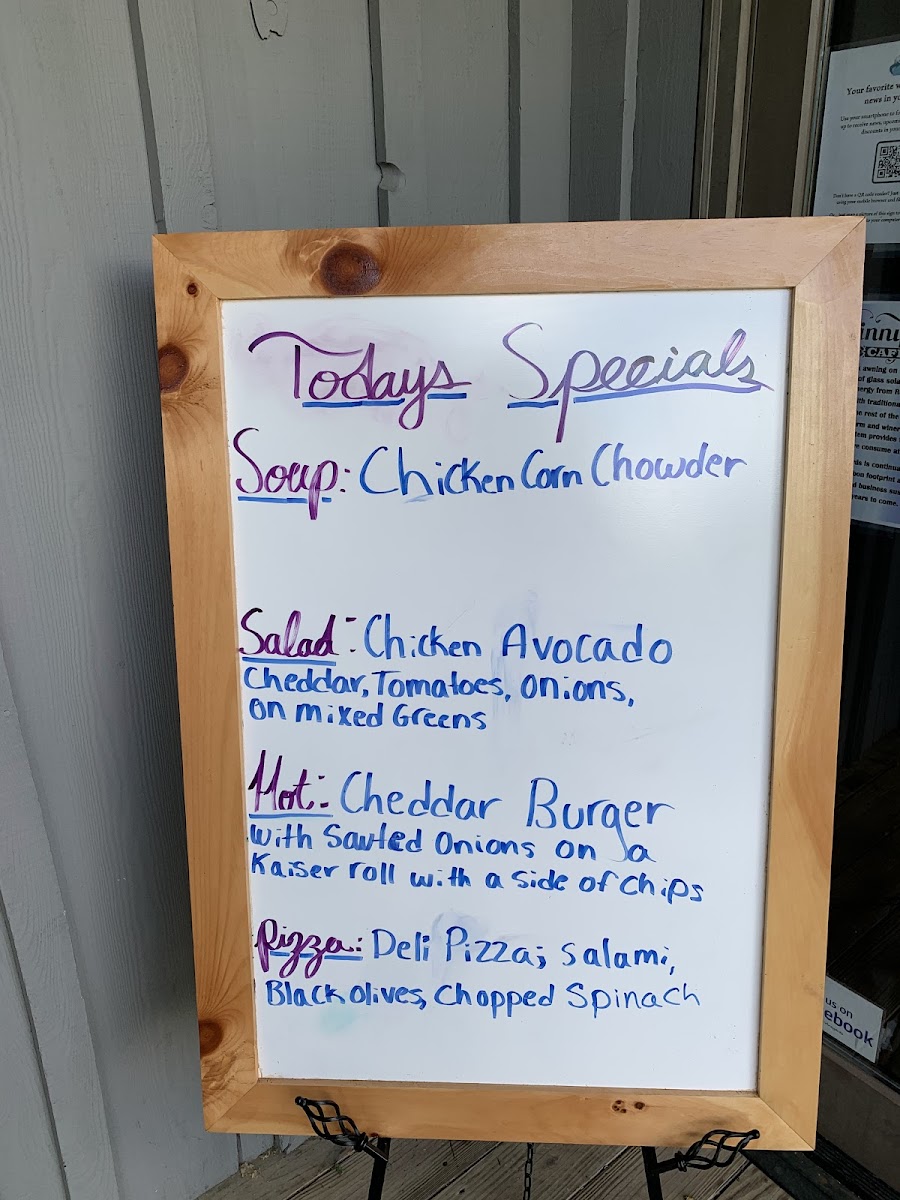 Todays Specials
Soup: Chicken Corn Chowder
Salad: Chicken Avocado
Cheddar, Tomatoes, onions,
on mixed Greens
Hot: Cheddar Burger
with Sauted Onions on a
Kaiser roll with a side of chips
Pizza: Deli Pizza; Salami,
Black olives, Chopped Spinach
Your favorite
news in
Use your smartphone to
up to receive news,
discounts in
Don't have a QR code reader? Just
using your mobile browser and
picture of this sign
CAFE
awning on
of glass sola
ergy from
ith traditiona
e rest of the
rm and winer
em provides
e consume at
is is continua
on footprint a
business sus
ears to come.
us on
ebook